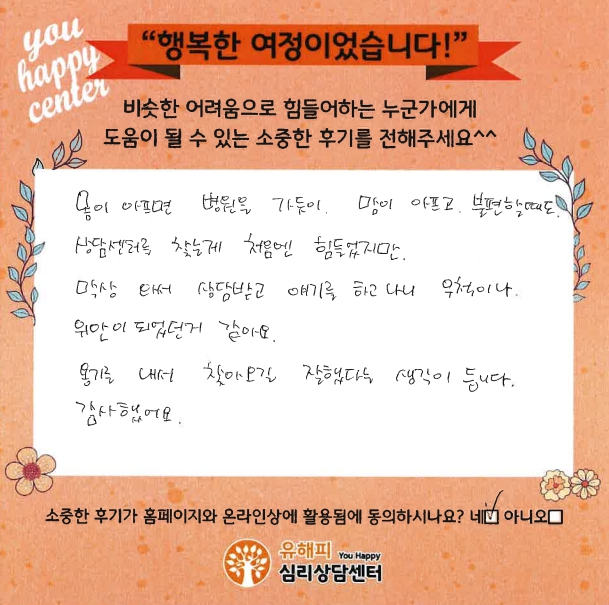 you
happy
center
“행복한 여정이었습니다!”
비슷한 어려움으로 힘들어하는 누군가에게
도움이 될 수 있는 소중한 후기를 전해주세요^^
몸이 아프면 병원을 가듯이. 맘이 아프고. 불편할때도.
상담센터를 찾는게 처음엔 힘들었지만.
막상 와서 상담받고 얘기를 하고 나니
위안이 되었던거 같아요.
용기를 내서 찾아오길 잘했다는 생각이 듭니다.
감사했어요.
소중한 후기가 홈페이지와 온라인상에 활용됨에 동의하시나요? 네☑ 아니오☐
유해피 You Happy
심리상담센터